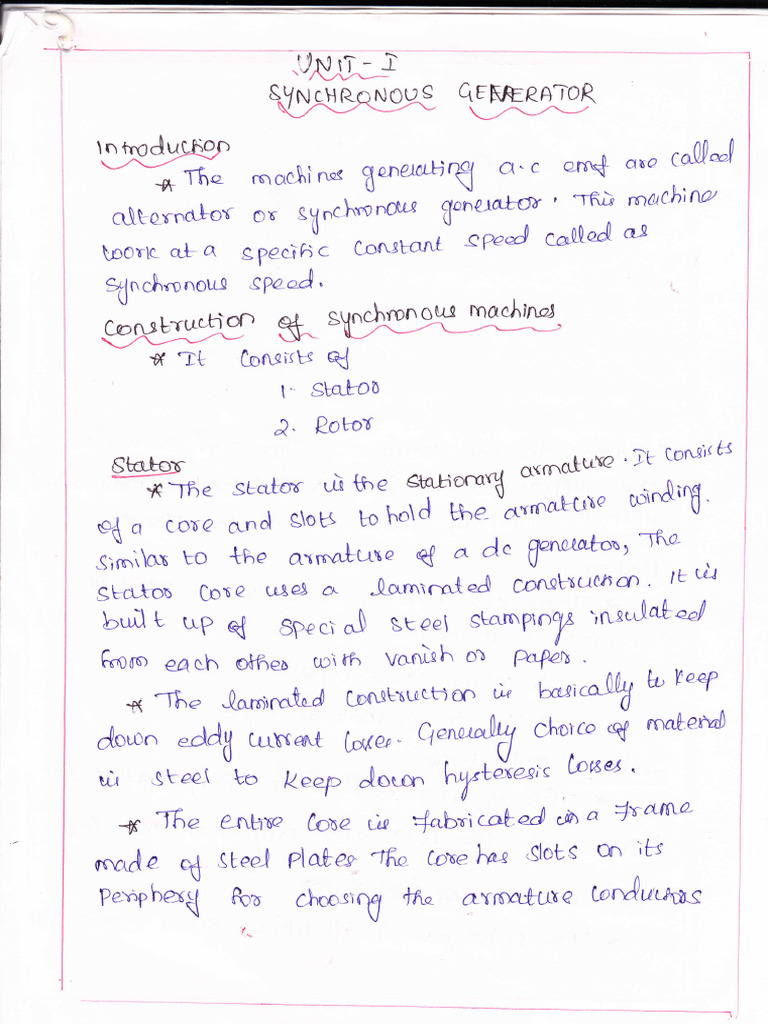 UNIT-I
SYNCHRONOUS GENERATOR
Introduction
* The machines generating a.c emf are called
alternator or synchronous generator. This machine
work at a specific constant speed called as
synchronous speed.
Construction of synchronous machines
* It consists of
1. Stator
2. Rotor
Stator
* The stator is the stationary armature. It consists
of a core and slots to hold the armature winding.
similar to the armature of a dc generator, The
stator core uses a laminated construction. It is
built up of special steel stampings insulated
from each other with vanish or paper.
* The laminated construction is basically to keep
down eddy current losses. Generally choice of material
is steel to keep down hysteresis losses.
* The entire core is fabricated in a frame
made of steel plates The core has slots on its
periphery for choosing the armature conductors